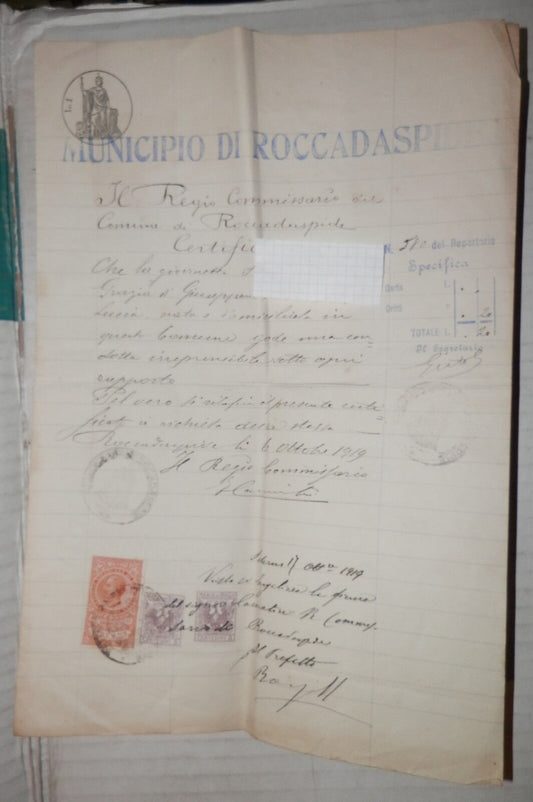 L. 1
MUNICIPIO DI ROCCADASPIDE
Il Regio Commissario del
Comune di Roccadaspide
Certifica
Che la giovanetta
Grazia di Giuseppe
Lucia, nata e domiciliata in
questo Comune gode una con=
dotta irreprensibile sotto ogni
rapporto
Pel vero si rilascia il presente certi=
ficato a richiesta della stessa
Roccadaspide li 6 Ottobre 1919
Il Regio Commissario
N. 580 del Repertorio
Specifica
Carta L.
Dritti " . 20
TOTALE L. . 20
Il Segretario
1919
Visto si legalizza la firma
del signor R. Commis
sario di Roccadaspide
Il Prefetto